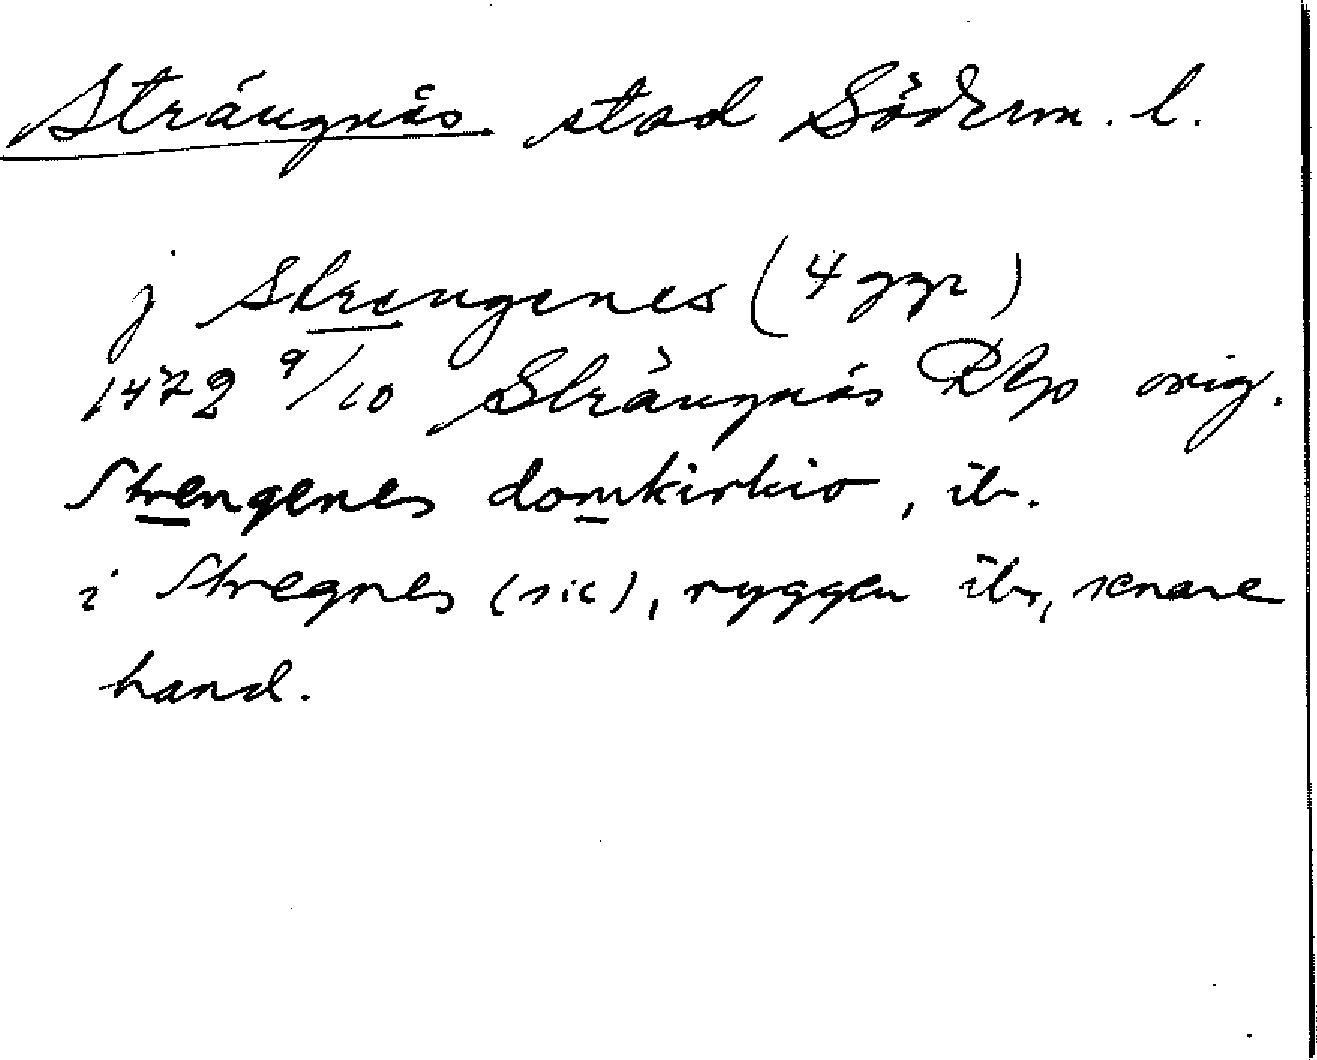 Strängnäs stad Söderm. l.
j Strengenes (4 ggr)
1472 9/10 Strängnäs RAp orig.
Strengenes domkirkio, ib.
i Stregnes (sic), ryggen ib, senare
hand.